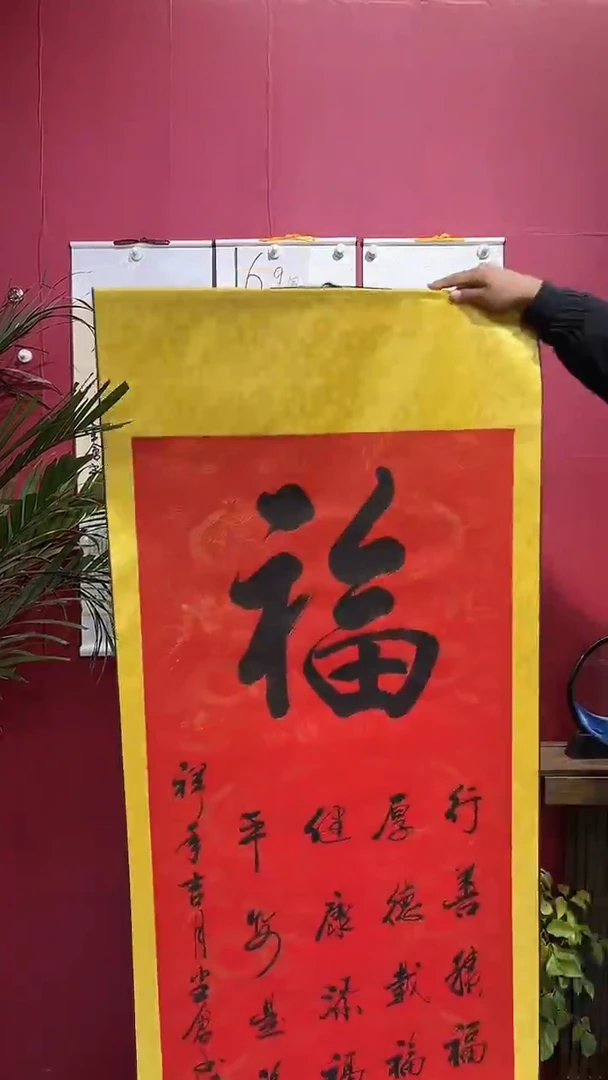 169
福
行善積福
厚德載福
健康添福
平安是
祥年吉月